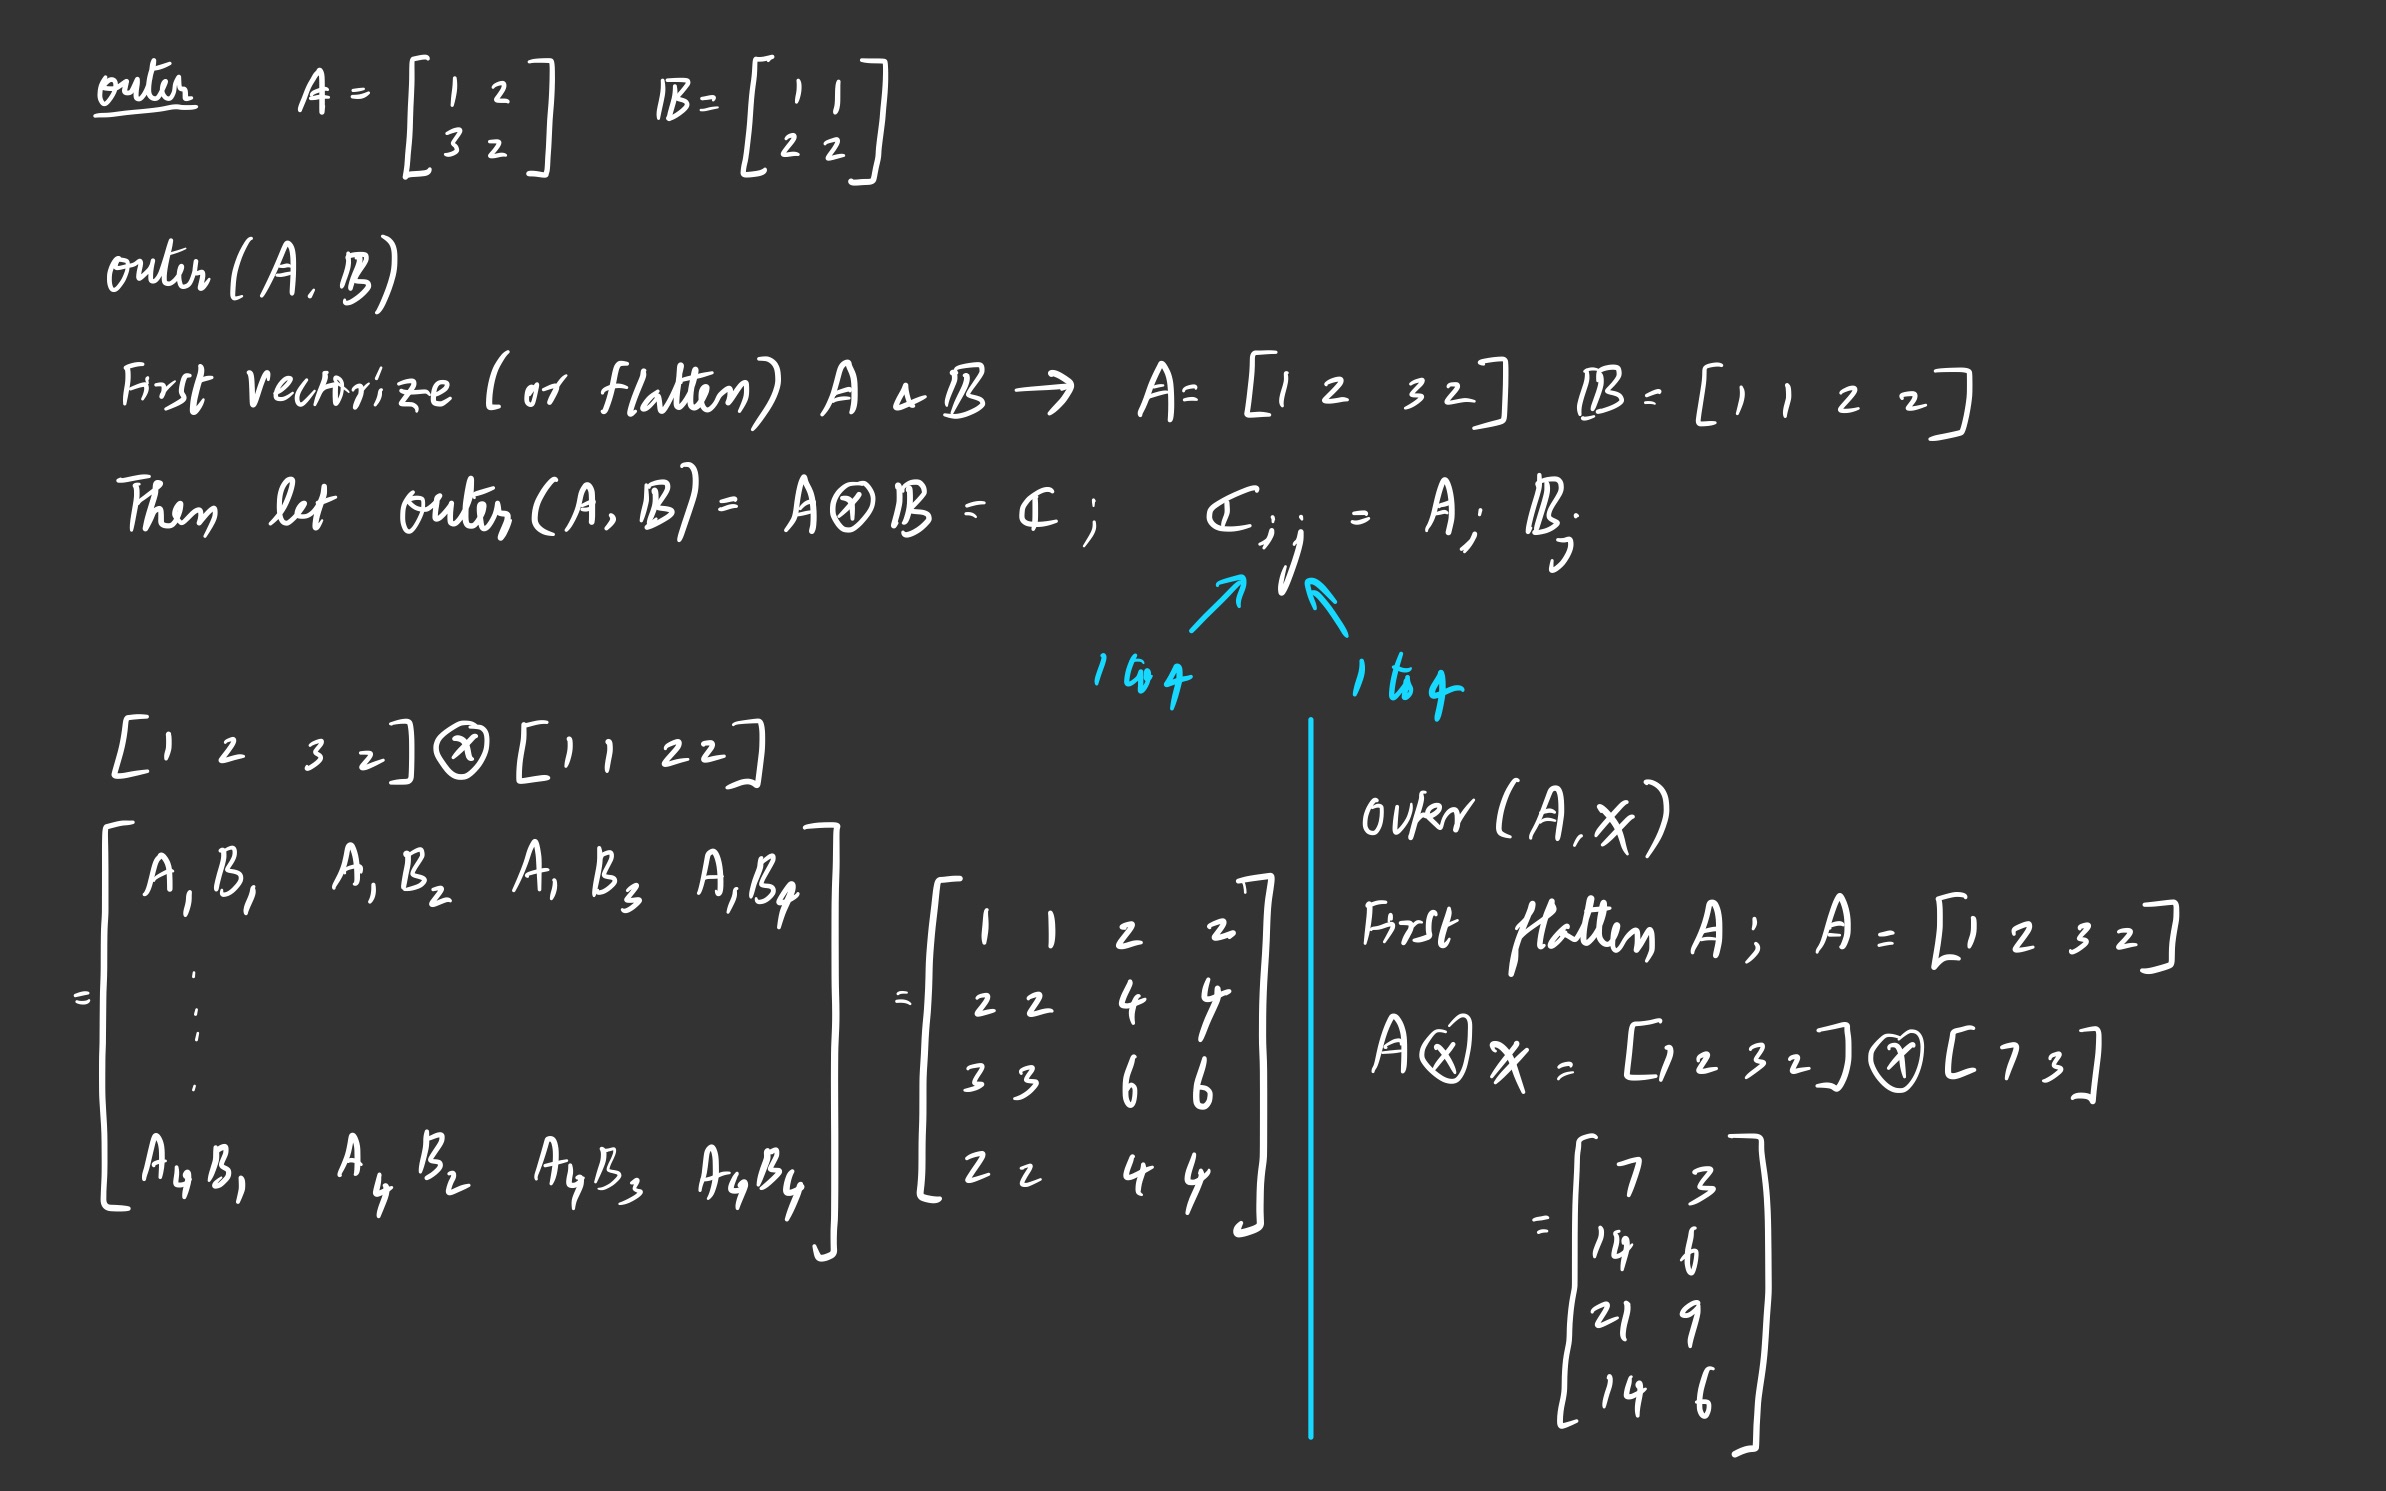 outer A = [ 1 2 B = [ 1 1
3 2 ] 2 2 ]
outer (A, B)
First vectorize (or flatten) A & B → A = [1 2 3 2] B = [1 1 2 2]
Then let outer(A, B) = A ⊗ B = C ; C_ij = A_i B_j
1 to 4 1 to 4
[1 2 3 2] ⊗ [1 1 2 2]
= [ A_1 B_1 A_1 B_2 A_1 B_3 A_1 B_4
⋮
A_4 B_1 A_4 B_2 A_4 B_3 A_4 B_4 ]
= [ 1 1 2 2
2 2 4 4
3 3 6 6
2 2 4 4 ]
outer (A, x)
First flatten A ; A = [1 2 3 2]
A ⊗ x = [1 2 3 2] ⊗ [7 3]
= [ 7 3
14 6
21 9
14 6 ]